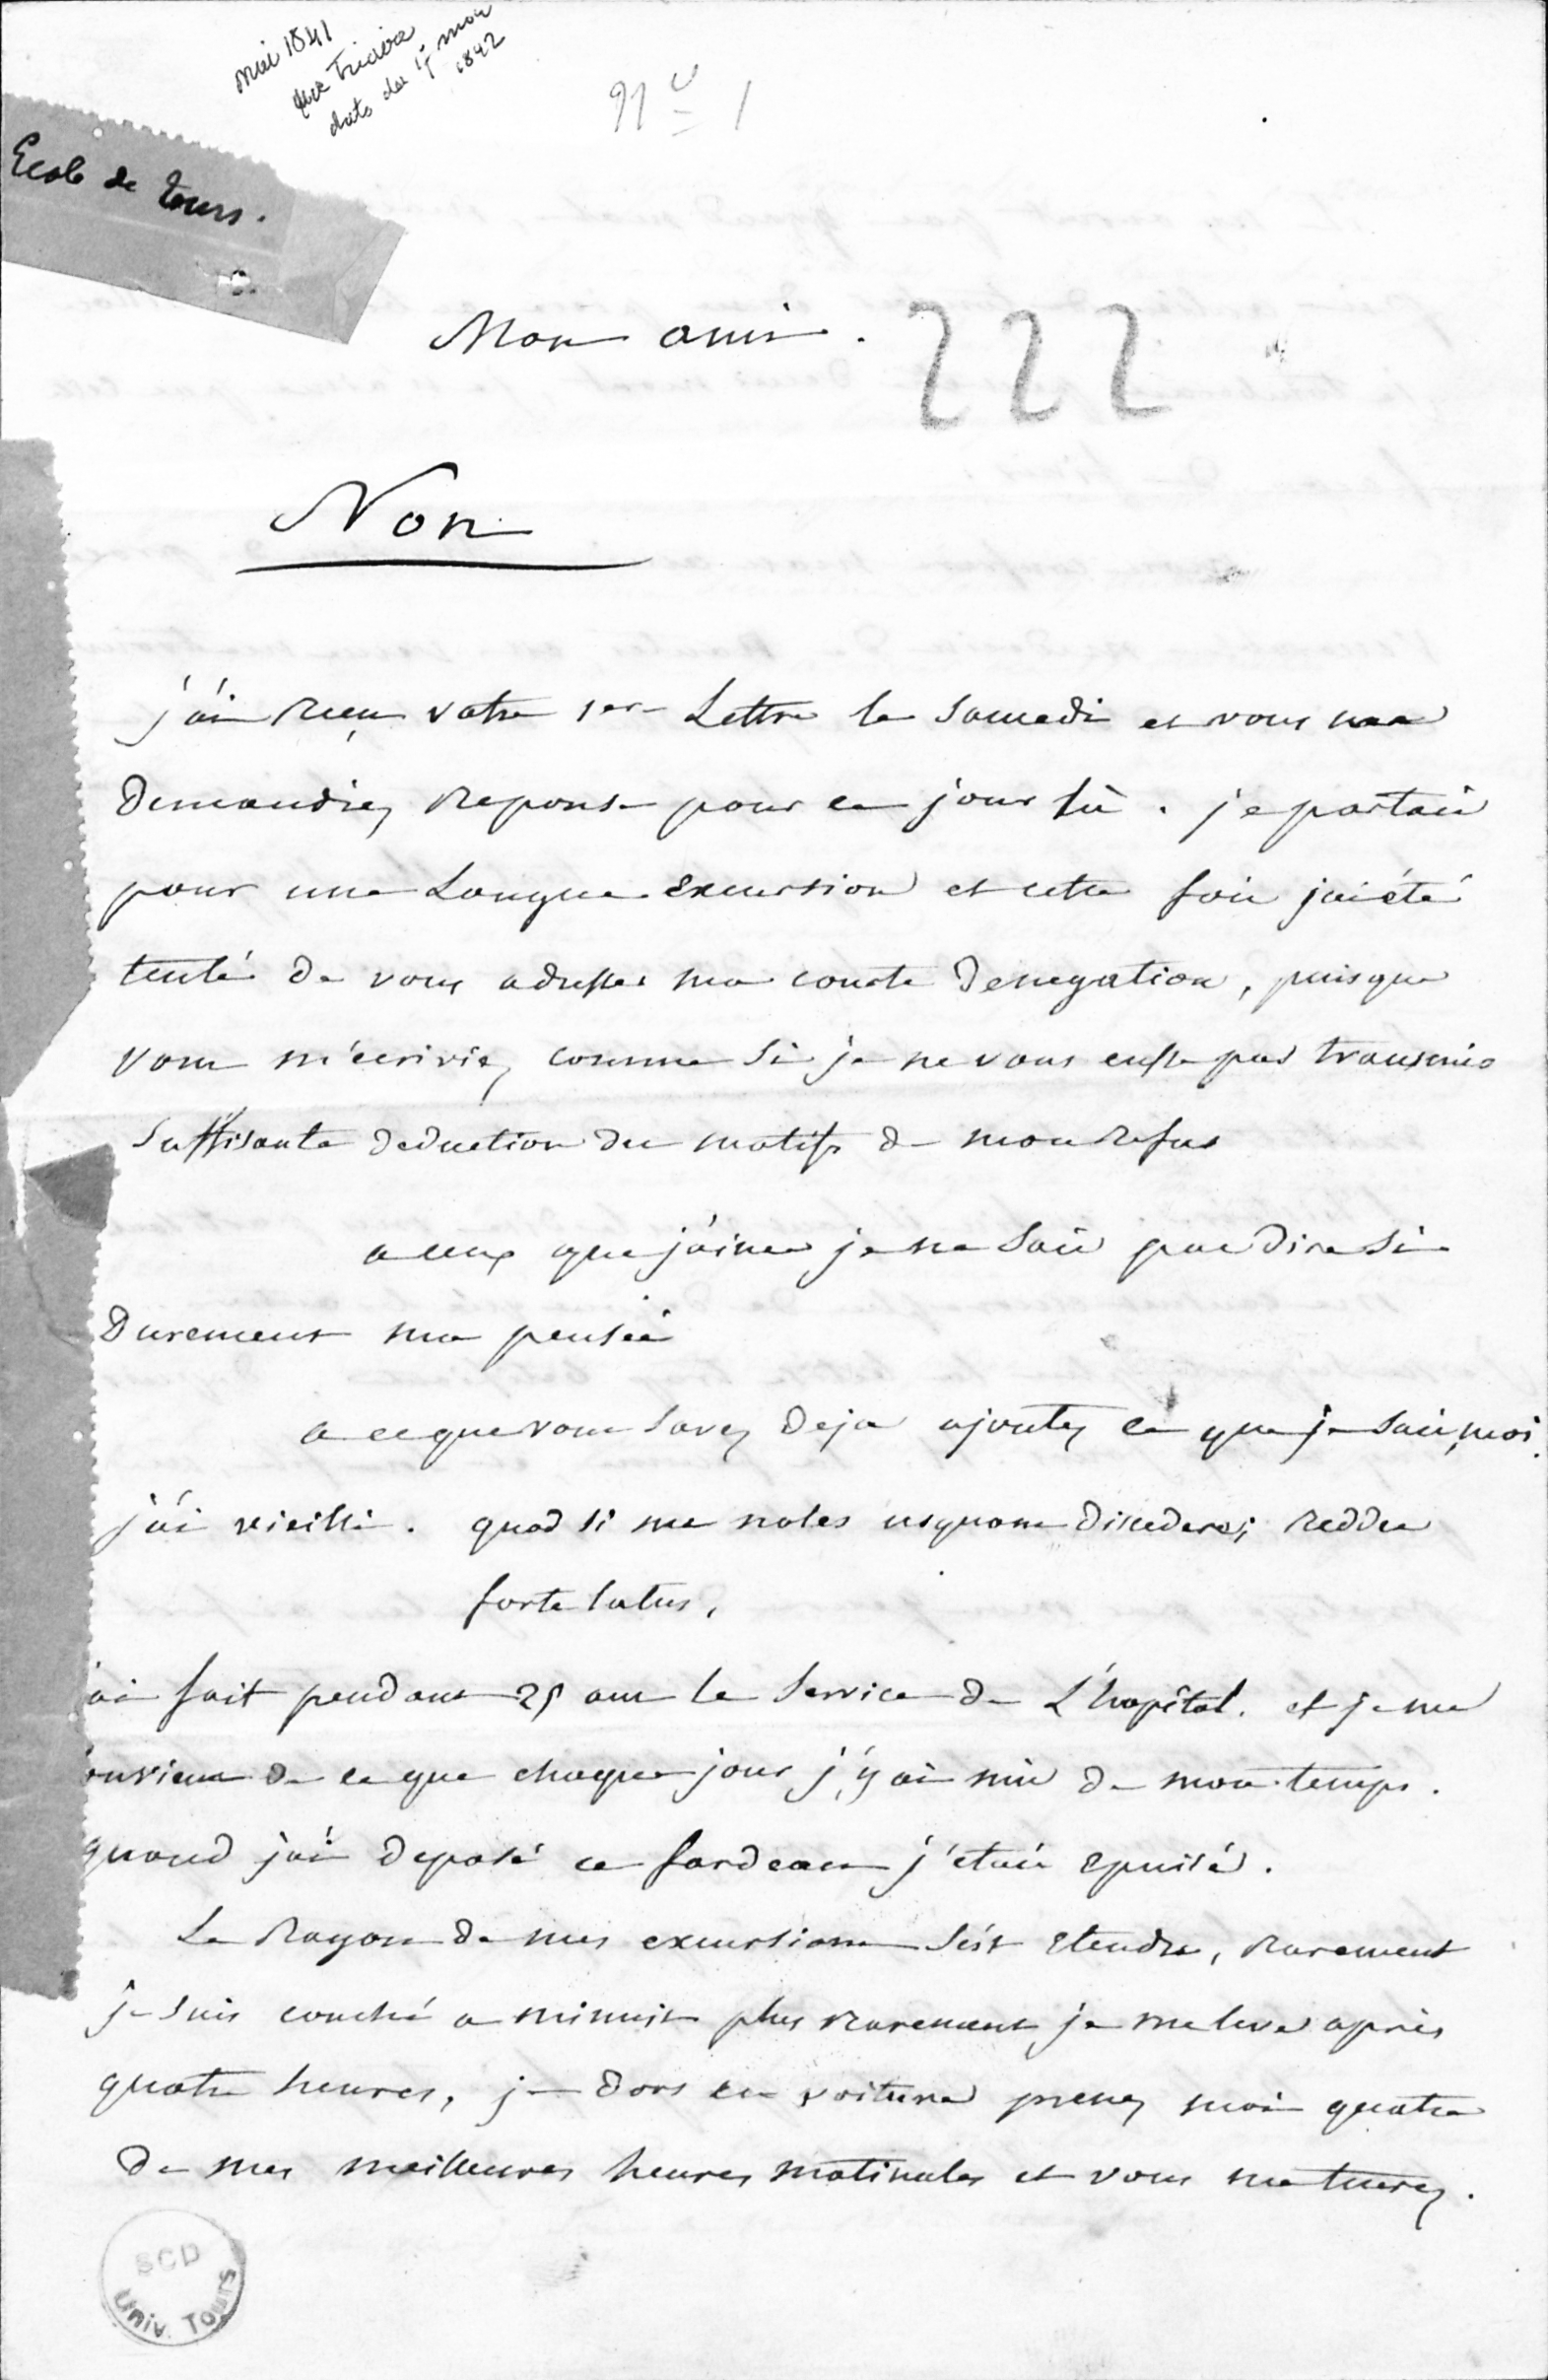 mai 1841
date du 15 mai
1842
N° 1
Ecole de Tours.
Mon ami.
222
Non
j'ai reçu votre 1er Lettre le Samedi et vous me
demandiez reponse pour ce jour là. je partais
pour une Longue Excursion et cette fois j'ai été
tenté de vous adresser ma courte denegation, puisque
vous m'ecriviez comme si je ne vous eusse pas transmis
suffisante deduction des motifs de mon refus
a ceux que j'aime je ne sais pas dire si
durement ma pensée
a ce que vous savez deja ajoutez ce que je sais, moi.
j'ai vieilli. quod si me noles usquam discedere; reddes
forte latus,
'ai fait pendant 25 ans le service de L'hopital. et je me
ouviens de ce que chaque jour j'y ai mis de mon temps.
quand j'ai deposé ce fardeau j'etais epuisé.
Le Rayon de mes excursions s'est etendu, rarement
je suis couché a minuit plus rarement je me leve après
quatre heures, je dors en voiture prenez moi quatre
de mes meilleures heures matinales et vous me tuerez.
SCD
Univ. TOURS